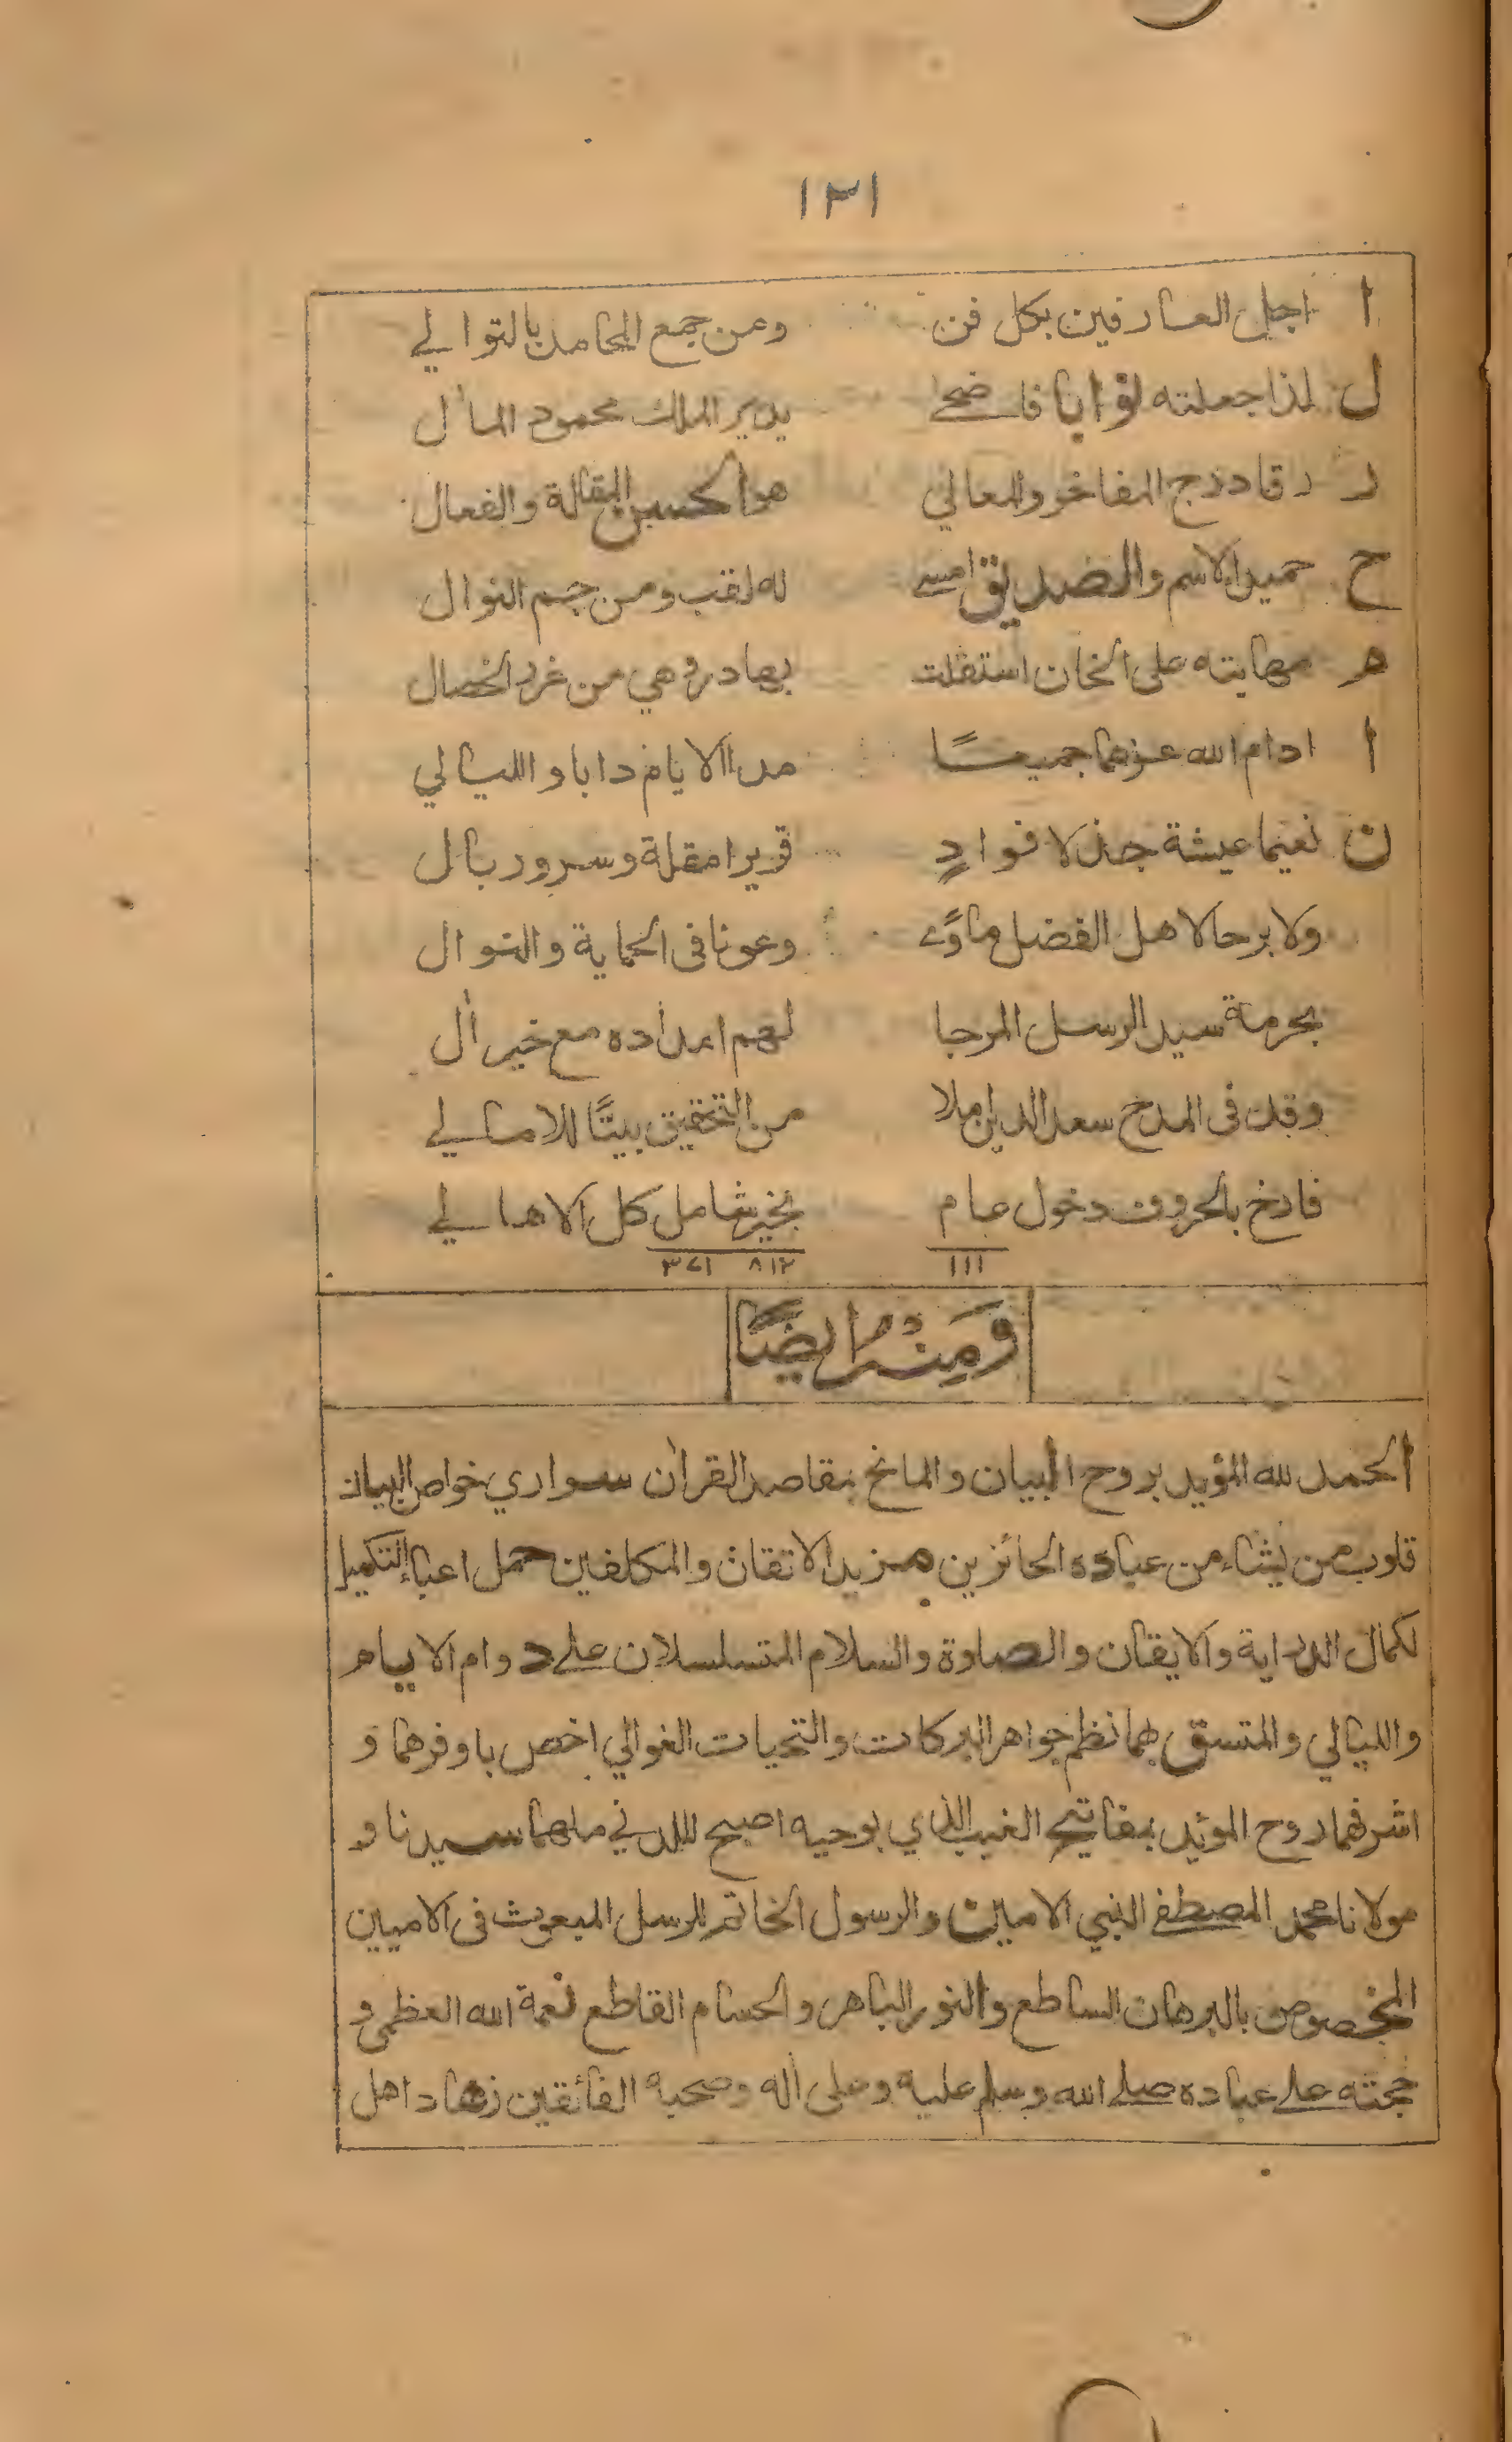 ١٣١
ا اجل العارفين بكل فن ومن جمع المحامد بالتوالي
ل لذا جعلته نوابا فاضحے يدير الملك محمود المأل
ر رقا درج المفاخر والمعالي هو الحسن المقالة والفعال
ح حميد الاسم والصديق امسے له لقب ومن جم النوال
م مهابته على الخان استقلت بهادر وهي من غرر الخصال
ا ادام الله عزهما جميعًا مدا الايام دابا والليالي
ن نعيما عيشة جذلا فوادٍ قريرا مقلة وسرور بال
ولا برحا لاهل الفضل مأوًے وعونا فى الحماية والنوال
بحرمة سيد الرسل المرجا لهم امداده مع خير أل
وقد فى المدح سعد الدين املا من التحقيق بيتًا للامالے
فارخ بالحروف دخول عام بخير شامل كل الاهالے
١١١ ٨١٢ ٣٧١
وَمِنْهُ ايضًا
الحمد لله المؤيد بروح البيان والمانح بمقاصد القرأن سواري خواص البيان
قلوب من يشاء من عباده الحائزين مزيد الاتقان والمكلفين حمل اعباء التكميل
لكمال الدراية والايقان والصلوة والسلام المتسلسلان علے دوام الايام
والليالي والمتسق بهما نظم جواهر البركات والتحيات الغوالي اخص باوفرهما و
اشرفهما روح المؤيد بمفاتيح الغيب الذي بوحيه اصبح للدني ملهما سيدنا و
مولانا محمد المصطفے النبي الامين والرسول الخاتم للرسل المبعوث فى الاميين
المخصوص بالبرهان الساطع والنور الباهر والحسام القاطع نعمة الله العظمى و
حجته علے عباده صلے الله وسلم عليه وعلى أله وصحبه الفائقين زهاد اهل